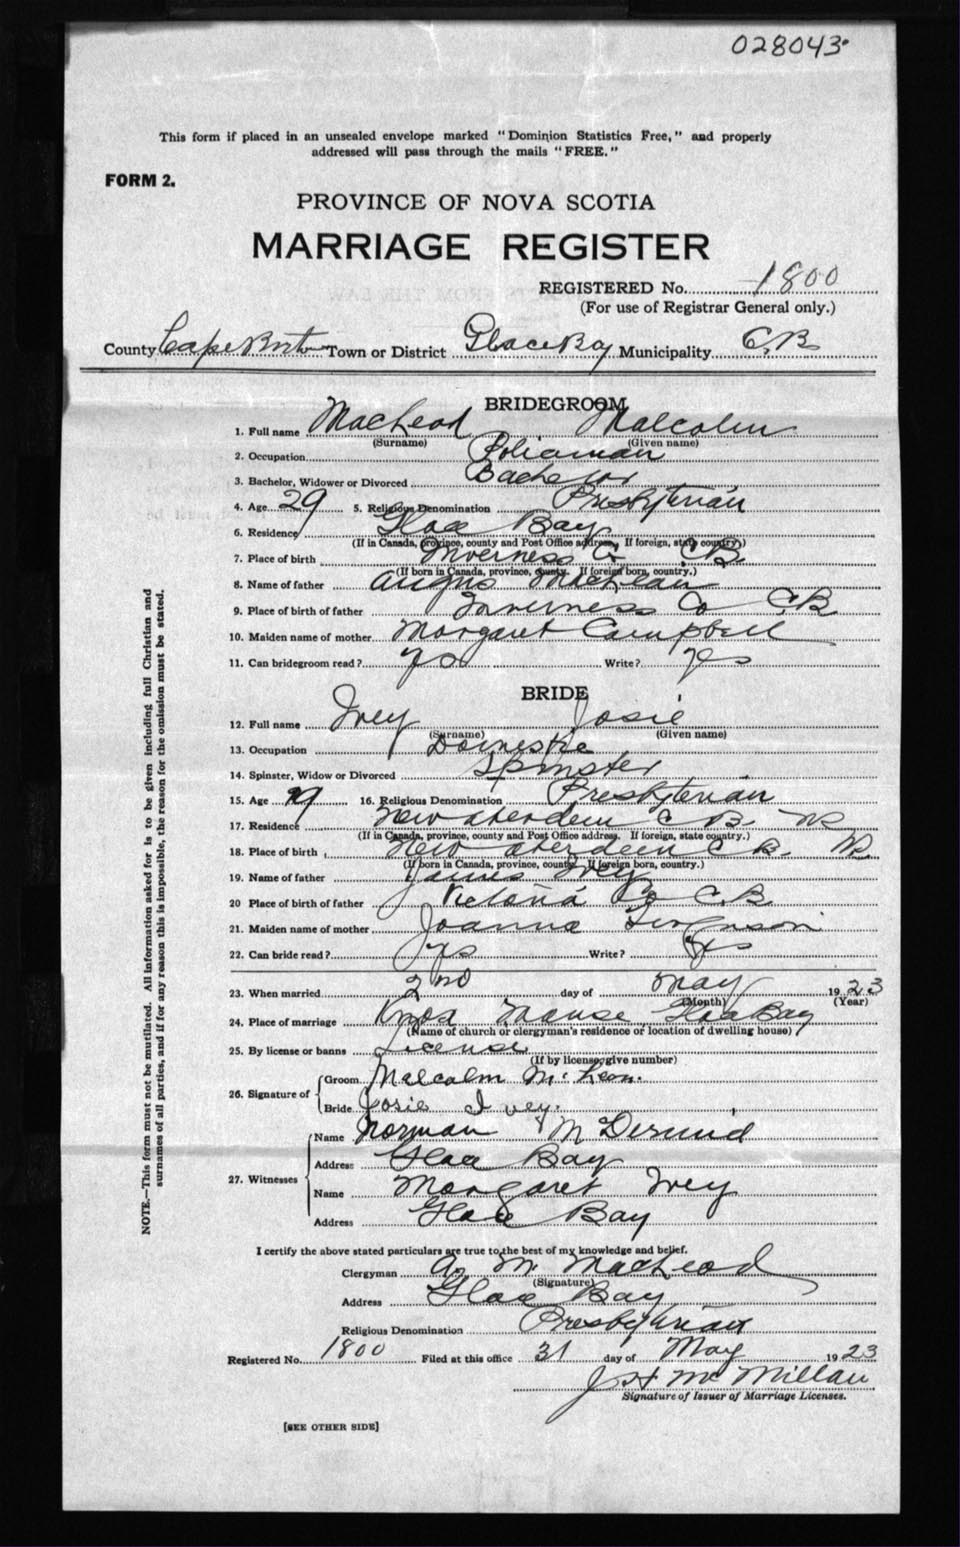 028043
This form if placed in an unsealed envelope marked "Dominion Statistics Free," and properly
addressed will pass through the mails "FREE."
FORM 2.
PROVINCE OF NOVA SCOTIA
MARRIAGE REGISTER
REGISTERED No. 1800
(For use of Registrar General only.)
County Cape Breton Town or District Glace Bay Municipality C.B
BRIDEGROOM
1. Full name MacLeod Malcolm
(Surname) (Given name)
2. Occupation Policeman
3. Bachelor, Widower or Divorced Bachelor
4. Age 29 5. Religious Denomination Presbyterian
6. Residence Glace Bay
(If in Canada, province, county and Post Office address. If foreign, state country.)
7. Place of birth Inverness Co C.B
(If born in Canada, province, county. If foreign born, country.)
8. Name of father Angus
9. Place of birth of father Inverness Co C.B
10. Maiden name of mother Margaret Campbell
11. Can bridegroom read? yes Write? yes
BRIDE
12. Full name Ivey Josie
(Surname) (Given name)
13. Occupation Domestic
14. Spinster, Widow or Divorced Spinster
15. Age 19 16. Religious Denomination Presbyterian
17. Residence New Aberdeen C B. NS
(If in Canada, province, county and Post Office address. If foreign, state country.)
18. Place of birth New Aberdeen C B. NS
(If born in Canada, province, county. If foreign born, country.)
19. Name of father James Ivey
20 Place of birth of father Victoria Co C.B
21. Maiden name of mother Joanna Ferguson
22. Can bride read? yes Write? yes
23. When married 2nd day of May 1923
(Month) (Year)
24. Place of marriage Knox Manse Glace Bay
(Name of church or clergyman's residence or location of dwelling house)
25. By license or banns License
(If by license, give number)
26. Signature of Groom Malcolm
Bride Josie Ivey.
27. Witnesses Name Norman
Address Glace Bay
Name Margaret Ivey
Address Glace Bay
I certify the above stated particulars are true to the best of my knowledge and belief.
Clergyman A. M. MacLeod
(Signature)
Address Glace Bay
Religious Denomination Presbyterian
Registered No. 1800 Filed at this office 31 day of May 1923
J H McMillan
Signature of Issuer of Marriage Licenses.
[SEE OTHER SIDE]
NOTE.—This form must not be mutilated. All information asked for is to be given including full Christian and
surnames of all parties, and if for any reason this is impossible, the reason for the omission must be stated.